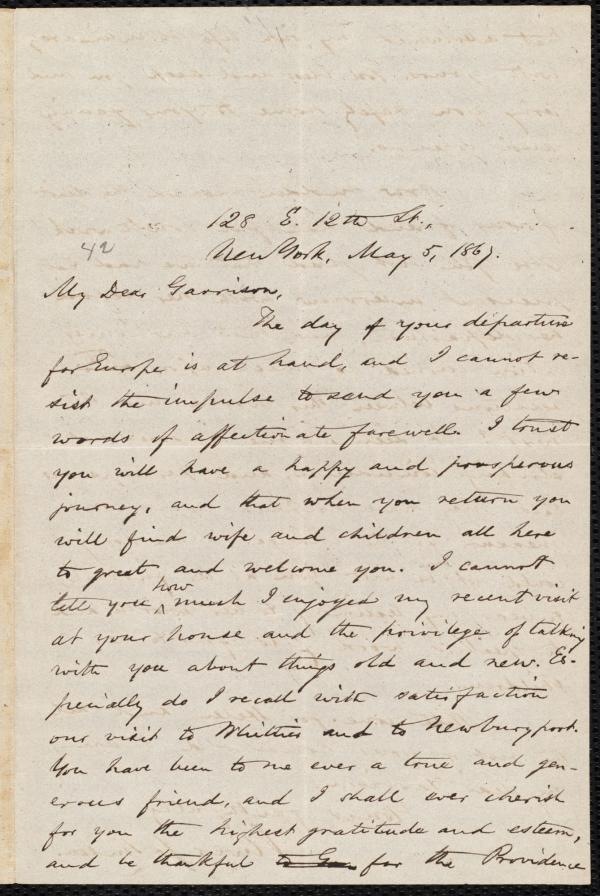 128 E. 12th St.,
42
New York, May 5, 1867.
My Dear Garrison,
The day of your departure
for Europe is at hand, and I cannot re-
sist the impulse to send you a few
words of affectionate farewell. I trust
you will have a happy and prosperous
journey, and that when you return you
will find wife and children all here
to greet and welcome you. I cannot
tell you how much I enjoyed my recent visit
at your house and the privilege of talking
with you about things old and new. Es-
pecially do I recall with satisfaction
our visit to Whittier and to Newburyport.
You have been to me ever a true and gen-
erous friend, and I shall ever cherish
for you the highest gratitude and esteem,
and be thankful to for the Providence